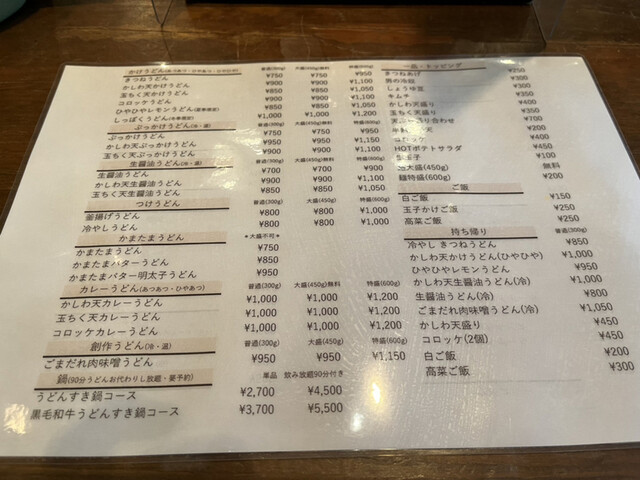 かけうどん
普通(300g) 大盛(450g)無料 特盛(600g)
きつねうどん ¥750 ¥750 ¥950
かしわ天かけうどん ¥900 ¥900 ¥1,100
玉ちく天かけうどん ¥850 ¥850 ¥1,050
コロッケうどん ¥900 ¥900 ¥1,100
ひやひやレモンうどん ¥850 ¥850 ¥1,050
しっぽくうどん ¥1,000 ¥1,000 ¥1,200
ぶっかけうどん(冷・温)
普通(300g) 大盛(450g)無料 特盛(600g)
ぶっかけうどん ¥750 ¥750 ¥950
かしわ天ぶっかけうどん ¥950
玉ちく天ぶっかけうどん ¥900 ¥900 ¥1,100
生醤油うどん(冷・温)
普通(300g) 大盛(450g)無料 特盛(600g)
生醤油うどん ¥700 ¥700 ¥900
かしわ天生醤油うどん ¥900 ¥900 ¥1,100
玉ちく天生醤油うどん ¥850 ¥850 ¥1,050
つけうどん
普通(300g) 大盛(450g) 特盛(600g)
釜揚げうどん ¥800 ¥800 ¥1,000
冷やしうどん ¥800 ¥800 ¥1,000
かまたまうどん
*大盛不可*
かまたまうどん ¥750
かまたまバターうどん ¥850
かまたまバター明太子うどん ¥950
カレーうどん(あつあつ・ひやあつ)
普通(300g) 大盛(450g)無料 特盛(600g)
かしわ天カレーうどん ¥1,000 ¥1,000 ¥1,200
玉ちく天カレーうどん ¥1,000 ¥1,000 ¥1,200
コロッケカレーうどん ¥1,000 ¥1,000 ¥1,200
創作うどん(冷・温)
普通(300g) 大盛(450g) 特盛(600g)
ごまだれ肉味噌うどん ¥950 ¥950 ¥1,150
鍋(90分うどんお代わりし放題・要予約)
単品 飲み放題90分付き
うどんすき鍋コース ¥2,700 ¥4,500
黒毛和牛うどんすき鍋コース ¥3,700 ¥5,500
一品・トッピング
きつねあげ ¥250
男の冷奴 ¥300
しょうゆ豆
キムチ
かしわ天盛り
玉ちく天盛り
HOTポテトサラダ
(450g) 無料
麺特盛(600g) ¥200
ご飯
白ご飯 ¥150
玉子かけご飯 ¥250
高菜ご飯 ¥250
持ち帰り
普通(300g)
冷やしきつねうどん ¥850
かしわ天かけうどん(ひやひや) ¥1,000
ひやひやレモンうどん ¥950
かしわ天生醤油うどん(冷) ¥1,000
生醤油うどん(冷) ¥800
ごまだれ肉味噌うどん(冷) ¥1,050
かしわ天盛り ¥450
コロッケ(2個) ¥450
白ご飯 ¥200
高菜ご飯 ¥300